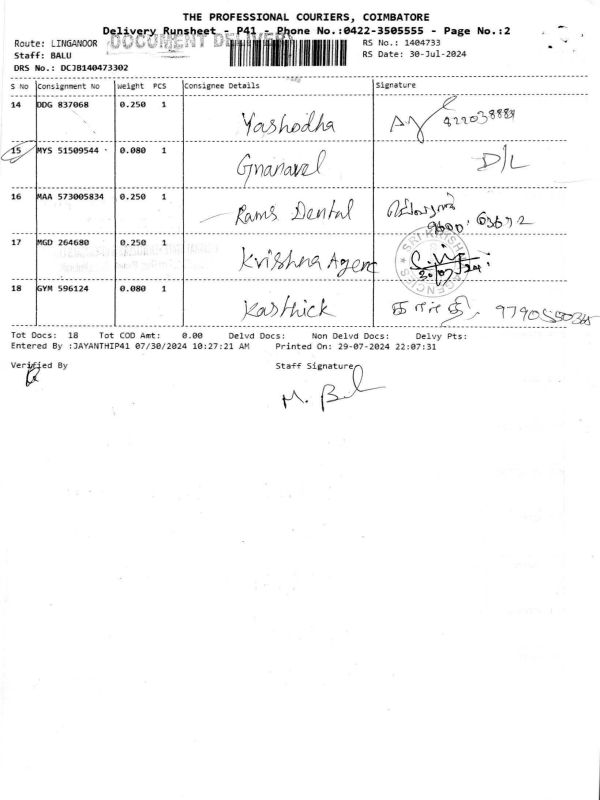 THE PROFESSIONAL COURIERS, COIMBATORE
Delivery Runsheet - P41 - Phone No.:0422-3505555 - Page No.:2
Route: LINGANOOR DOCUMENT DELIVERY RS No.: 1404733
Staff: BALU RS Date: 30-Jul-2024
DRS No.: DCJB140473302
S No Consignment No Weight PCS Consignee Details Signature
14 DDG 837068 0.250 1
Yashodha
15 MYS 51509544 0.080 1
Gnanavel D/L
16 MAA 573005834 0.250 1
Rams Dental
17 MGD 264680 0.250 1
Krishna Agenc
SRI KRISHNA AGENCIES
30/07/24
18 GYM 596124 0.080 1
Kasthick கார்தி
Tot Docs: 18 Tot COD Amt: 0.00 Delvd Docs: Non Delvd Docs: Delvy Pts:
Entered By :JAYANTHIP41 07/30/2024 10:27:21 AM Printed On: 29-07-2024 22:07:31
Verified By Staff Signature
M. Bal